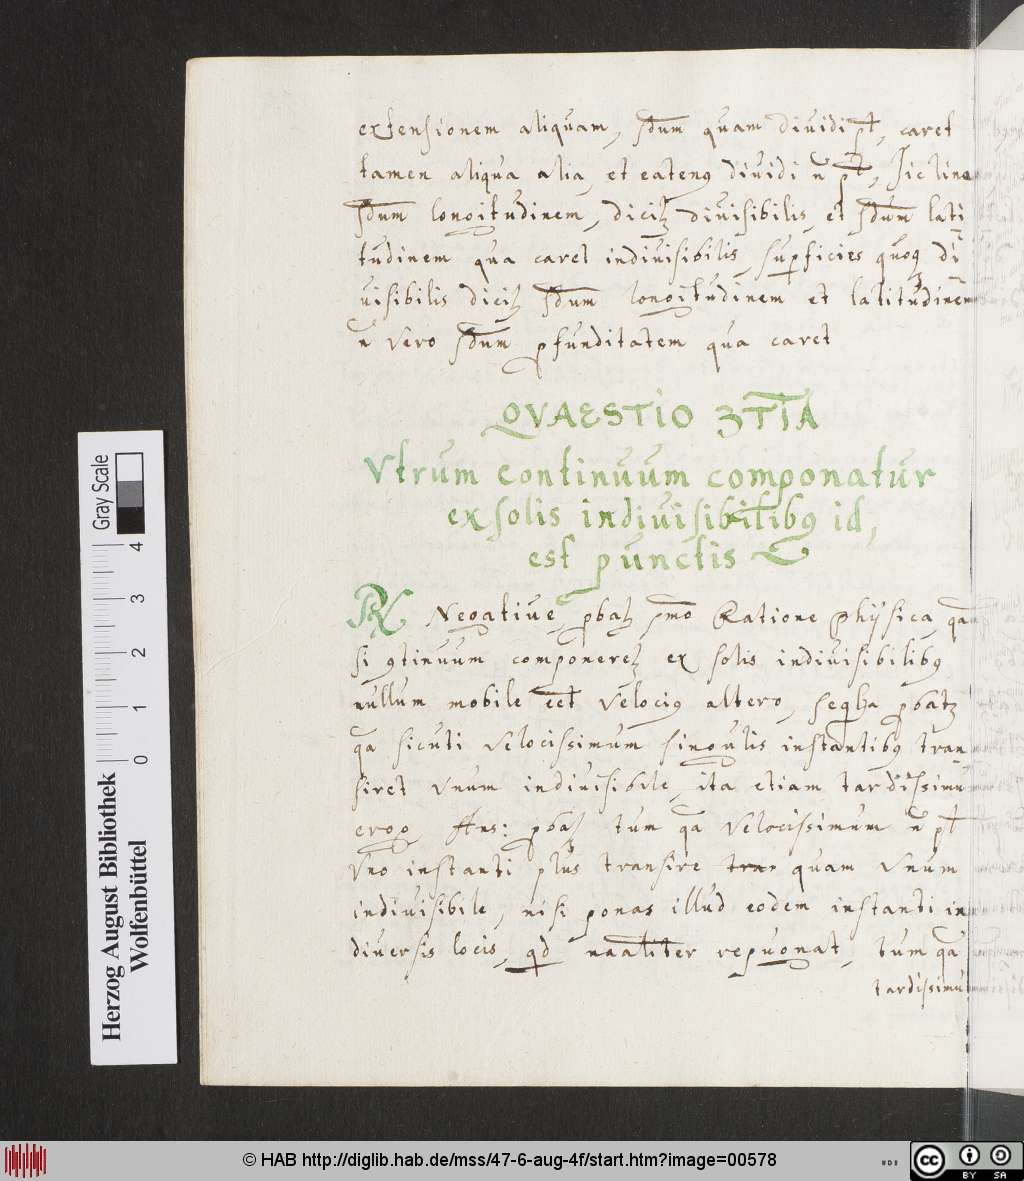 extensionem aliquam, sdum quam diuidi pt, caret
tamen aliqua alia, et eatenꝰ diuidi ñ pt, Sic linea
sdum longitudinem, dicitꝛ diuisibilis, et sdum lati
tudinem qua caret indiuisibilis, suꝑficies quoqꝫ di
uisibilis dicitꝛ sdum longitudinem et latitudinem
ñ vero sdum ꝓfunditatem qua caret
QVAESTIO 3TIA
Vtrum continuum componatur
ex solis indiuisibilibꝰ id,
est punctis
Negatiue, ꝓbatꝛ pmo Ratione Physica, qa
si ꝯtinuum componeretꝛ ex solis indiuisibilibꝰ
nullum mobile eet velociꝰ altero, seqla ꝓbatꝛ
qa sicuti velocissimum singulis instantibꝰ tran
siret vnum indiuisibile, ita etiam tardissimũ
ergo, Ans: ꝓbatꝛ tum qa velocissimum ñ pt
vno instanti plus transire tran quam vnum
indiuisibile, nisi ponas illud eodem instanti in
diuersis locis, qd naaliter repugnat, tum qa
tardissimũ
Gray Scale
4
3
2
1
0
Herzog August Bibliothek
Wolfenbüttel
© HAB http://diglib.hab.de/mss/47-6-aug-4f/start.htm?image=00578
cc BY SA